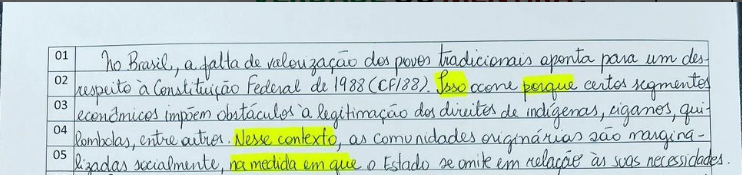 01 No Brasil, a falta de valorização dos povos tradicionais aponta para um des-
02 respeito à Constituição Federal de 1988 (CF/88). Isso ocorre porque certos segmentos
03 econômicos impõem obstáculos à legitimação dos direitos de indígenas, ciganos, qui-
04 lombolas, entre outros. Nesse contexto, as comunidades originárias são margina-
05 lizadas socialmente, na medida em que o Estado se omite em relação às suas necessidades.